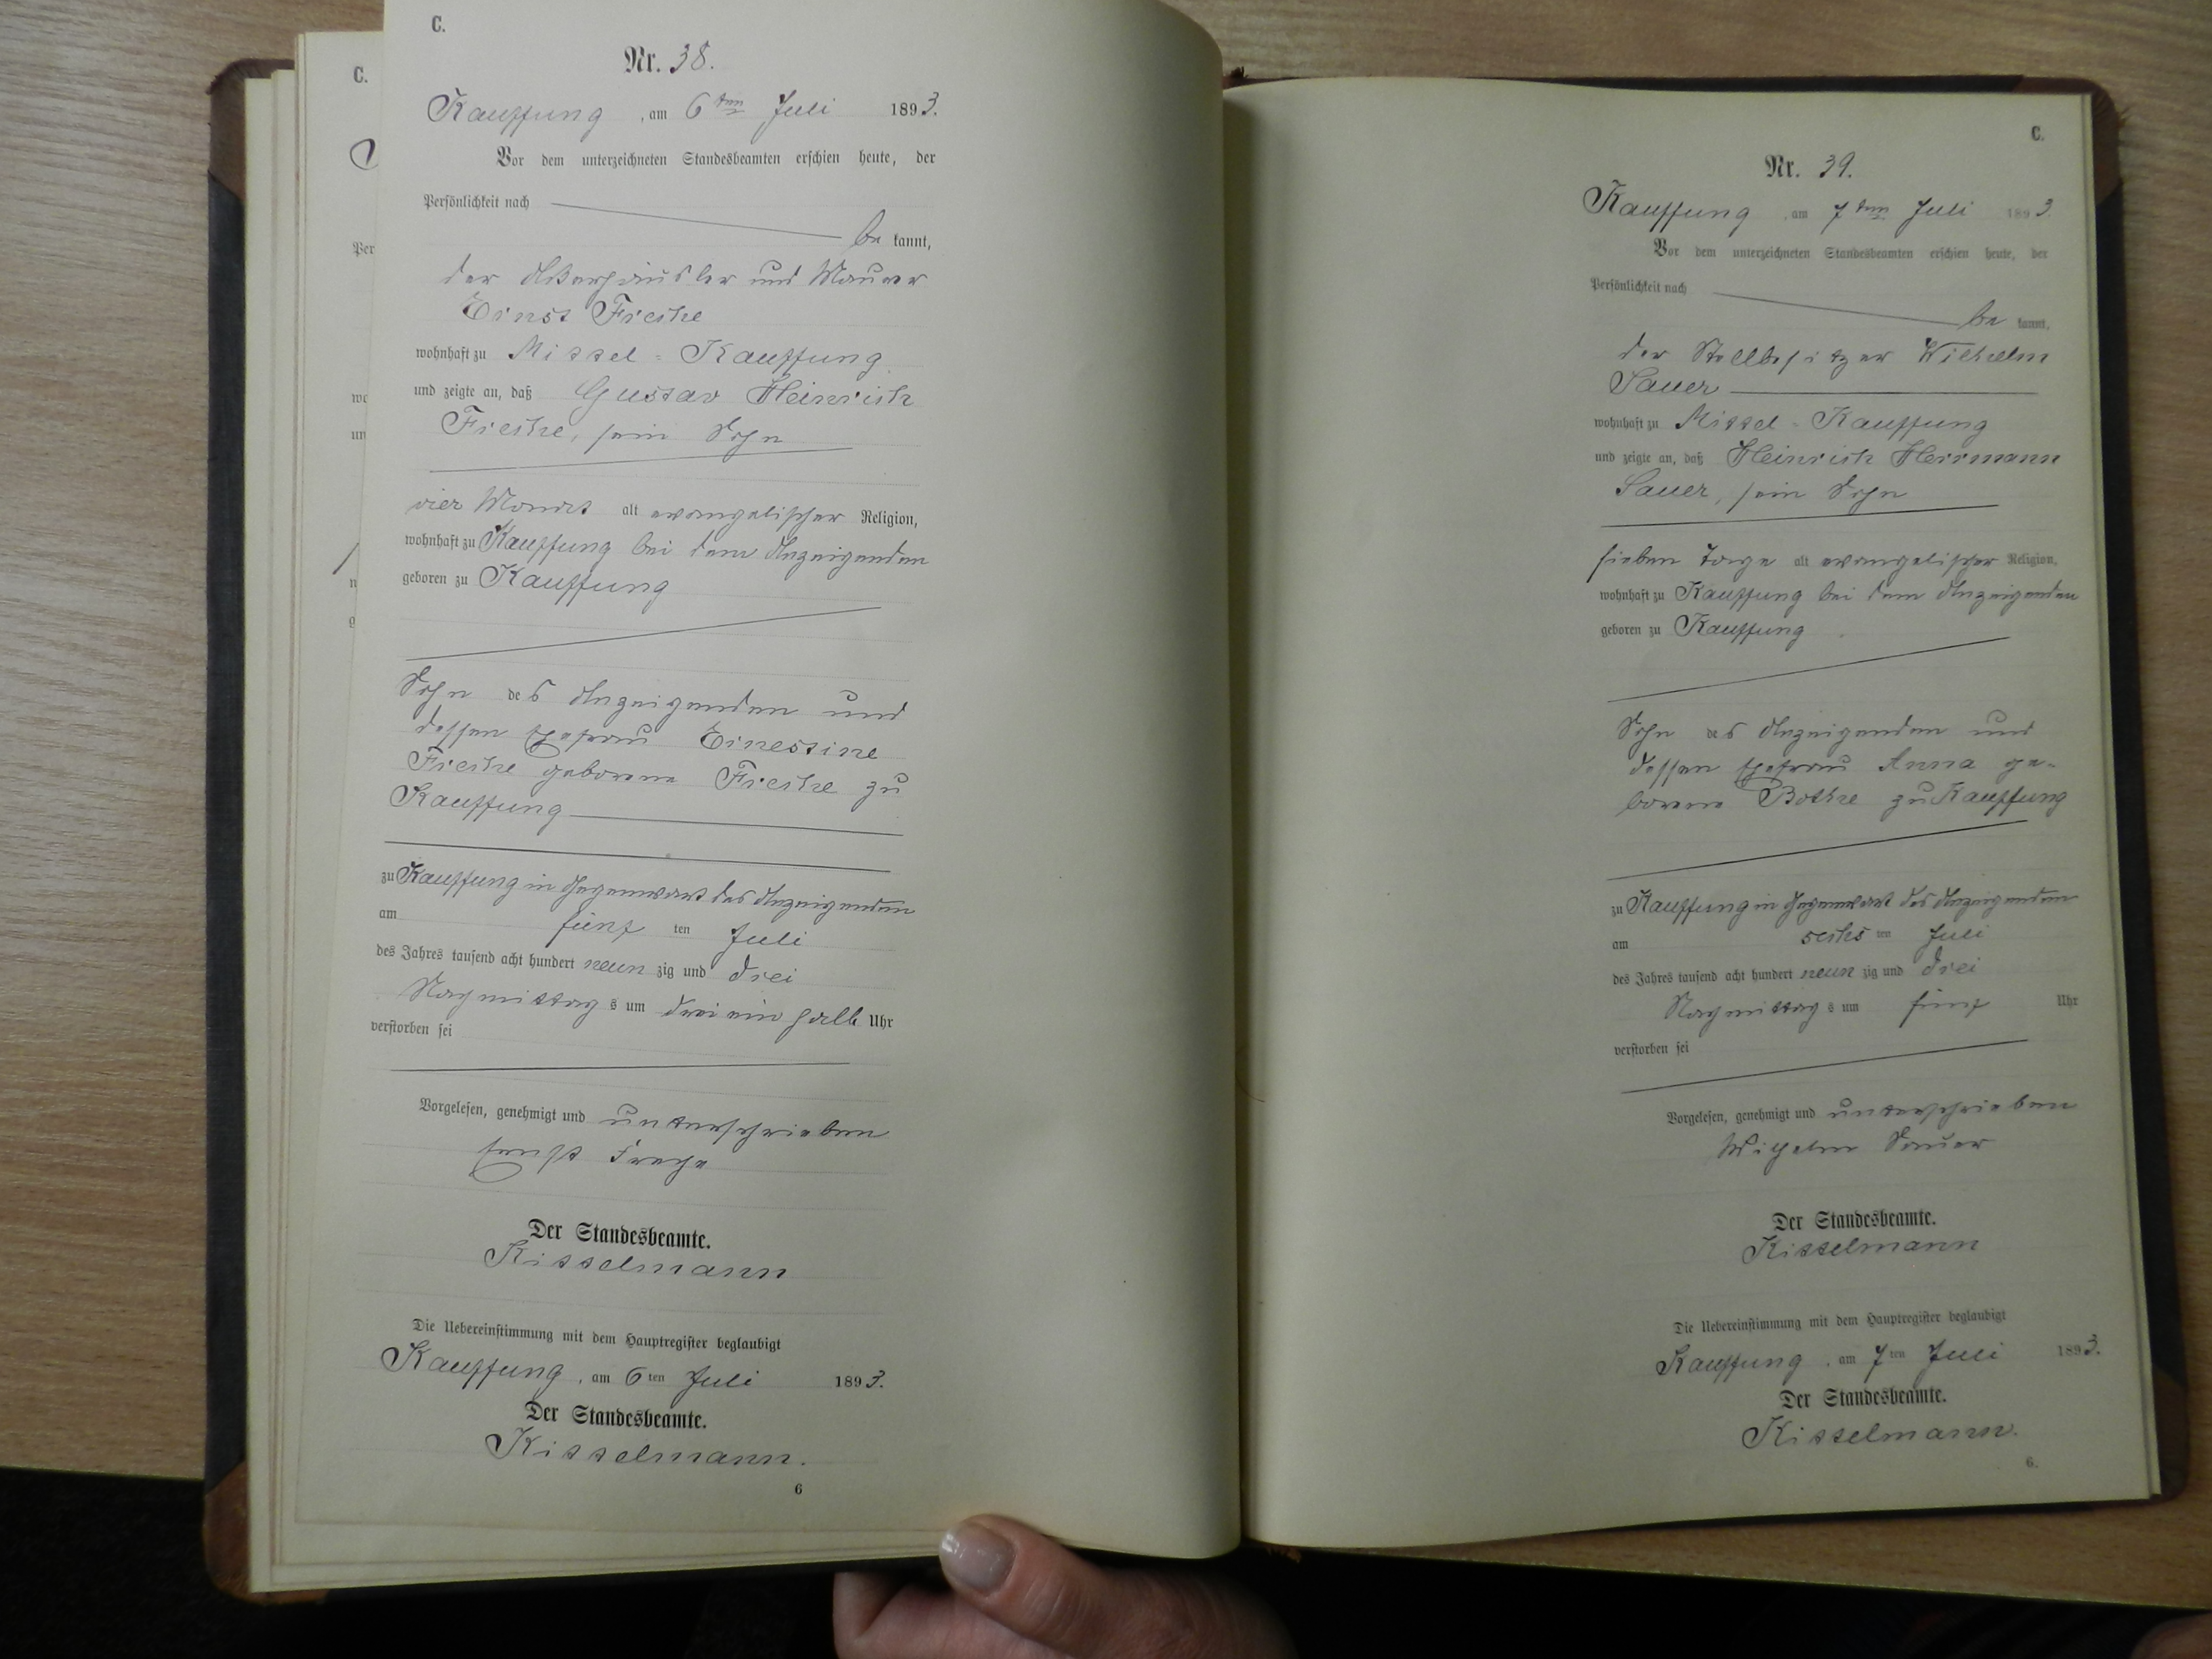 C.
Nr. 38.
Kauffung, am 6ten Juli 1893.
Vor dem unterzeichneten Standesbeamten erschien heute, der
Persönlichkeit nach
be kannt,
der Ackerhäusler und Maurer
Ernst Freche
wohnhaft zu Mittel-Kauffung
und zeigte an, daß Gustav Heinrich
Freche, sein Sohn
vier Monat alt evangelischer Religion,
wohnhaft zu Kauffung bei dem Anzeigenden
geboren zu Kauffung
Sohn des Anzeigenden und
dessen Ehefrau Ernestine
Freche geborene Freche zu
Kauffung
zu Kauffung in Gegenwart des Anzeigenden
am fünf ten Juli
des Jahres tausend acht hundert neun zig und drei
Nachmittag s um drei ein halb Uhr
verstorben sei
Vorgelesen, genehmigt und unterschrieben
Ernst Freche
Der Standesbeamte.
Kittelmann
Die Uebereinstimmung mit dem Hauptregister beglaubigt
Kauffung, am 6 ten Juli 1893.
Der Standesbeamte.
Kittelmann.
6
C.
Nr. 39.
Kauffung, am 7ten Juli 1893.
Vor dem unterzeichneten Standesbeamten erschien heute, der
Persönlichkeit nach
be kannt,
der Stellbesitzer Wilhelm
Sauer
wohnhaft zu Mittel-Kauffung
und zeigte an, daß Heinrich Herrmann
Sauer, sein Sohn
sieben Tage alt evangelischer Religion,
wohnhaft zu Kauffung bei dem Anzeigenden
geboren zu Kauffung
Sohn des Anzeigenden und
dessen Ehefrau Anna ge-
borene Bothe zu Kauffung
zu Kauffung in Gegenwart des Anzeigenden
am sechs ten Juli
des Jahres tausend acht hundert neun zig und drei
Nachmittag s um fünf Uhr
verstorben sei
Vorgelesen, genehmigt und unterschrieben
Wilhelm Sauer
Der Standesbeamte.
Kittelmann
Die Uebereinstimmung mit dem Hauptregister beglaubigt
Kauffung, am 7 ten Juli 1893.
Der Standesbeamte.
Kittelmann.
6.